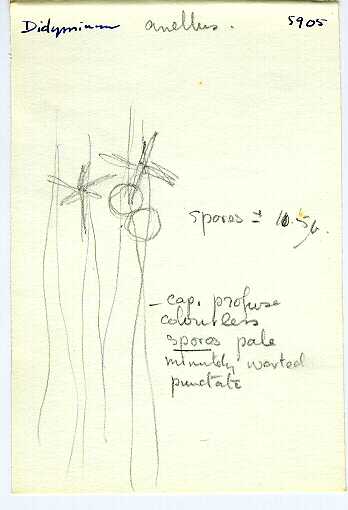 Didymium anellus. 5905
spores ± 10.5µ.
– cap. profuse
colourless
spores pale
minutely warted
punctate